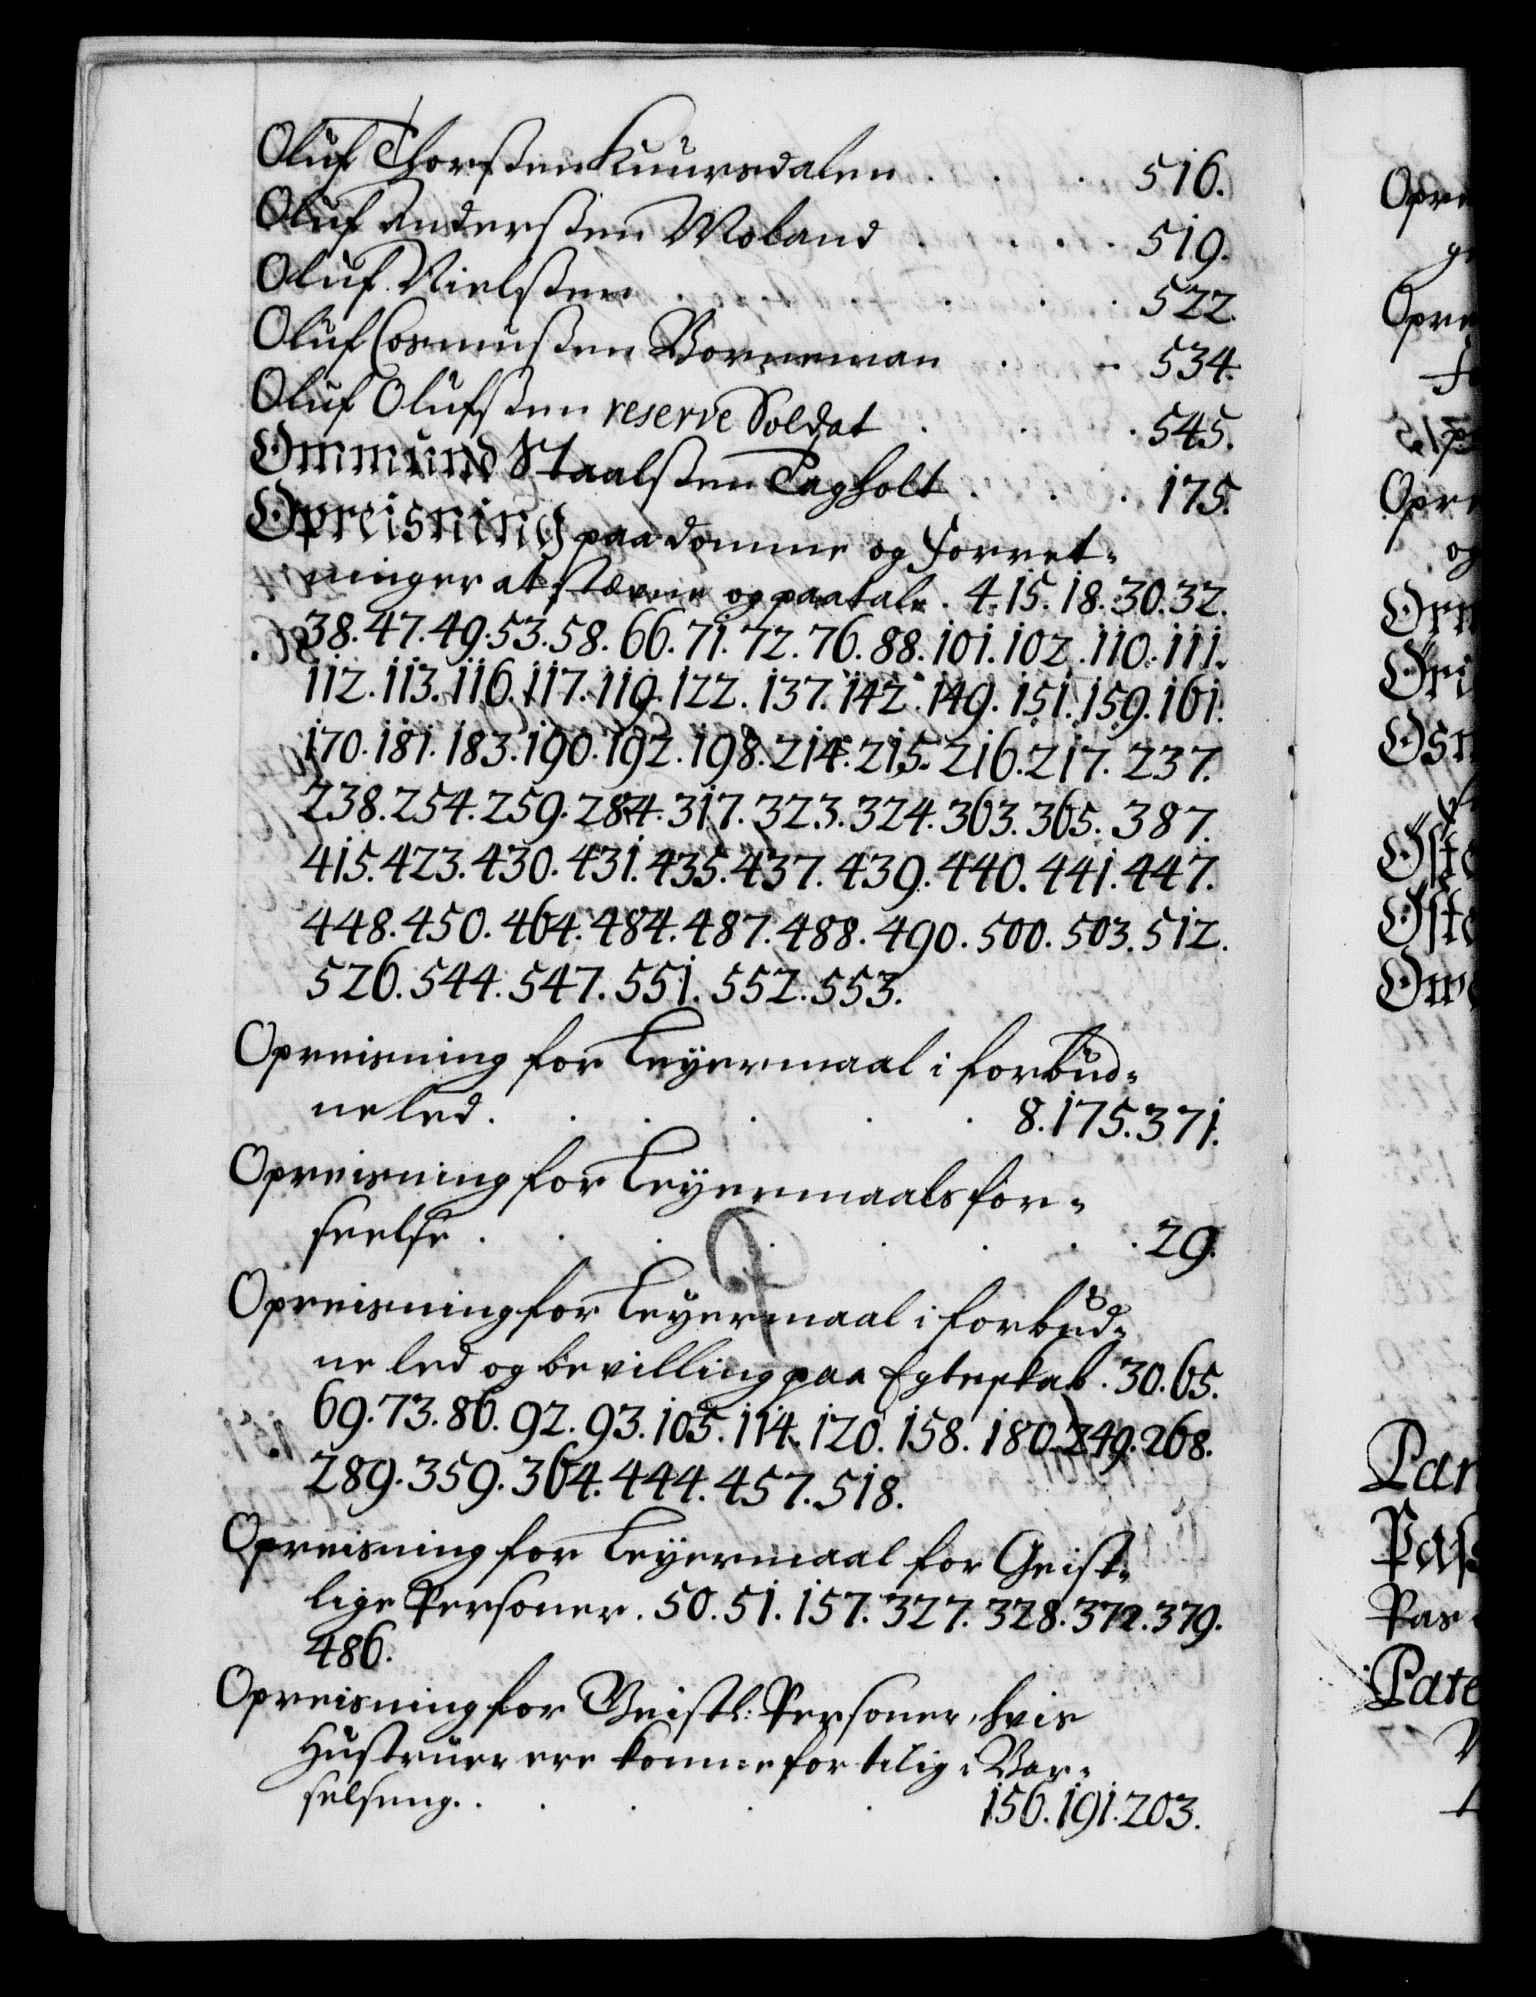 Oluf Thorßen Kuursdalen . . . 516.
Oluf Anderßen Moland . . . . 519.
Oluf Nielßen . . . . . . 522.
Oluf Cosmußen Borneman . . 534.
Oluf Olufsßen reserve Soldat . . . 545.
Ommund Staalßen Tagholt . . . 175.
Opreisning paa domme og forret-
ninger at stævne og paatale . 4. 15. 18. 30. 32.
38. 47. 49. 53. 58. 66. 71. 72. 76. 88. 101. 102. 110. 111.
112. 113. 116. 117. 119. 122. 137. 142. 149. 151. 159. 161.
170. 181. 183. 190. 192. 198. 214. 215. 216. 217. 237.
238. 254. 259. 284. 317. 323. 324. 363. 365. 387.
415. 423. 430. 431. 435. 437. 439. 440. 441. 447.
448. 450. 464. 484. 487. 488. 490. 500. 503. 512.
526. 544. 547. 551. 552. 553.
Opreisning for Leyermaal i forbud-
ne led . . . . . 8. 175. 371.
Opreisning for Leyermaals for-
seelse . . . . . . . 29.
Opreisning for Leyermaal i forbud-
ne led og bevilling paa Egteskab . 30. 65.
69. 73. 86. 92. 93. 105. 114. 120. 158. 180. 249. 268.
289. 359. 364. 444. 457. 518.
Opreisning for Leyermaal for Geist-
lige Personer . 50. 51. 157. 327. 328. 372. 379.
486.
Opreisning for Geistl: Personer, hvis
Hustruer ere komme for tilig i Bar-
selseng . . . . . 156. 191. 203.
Opre
Opre
Opre
og
Par
Pas
Pate